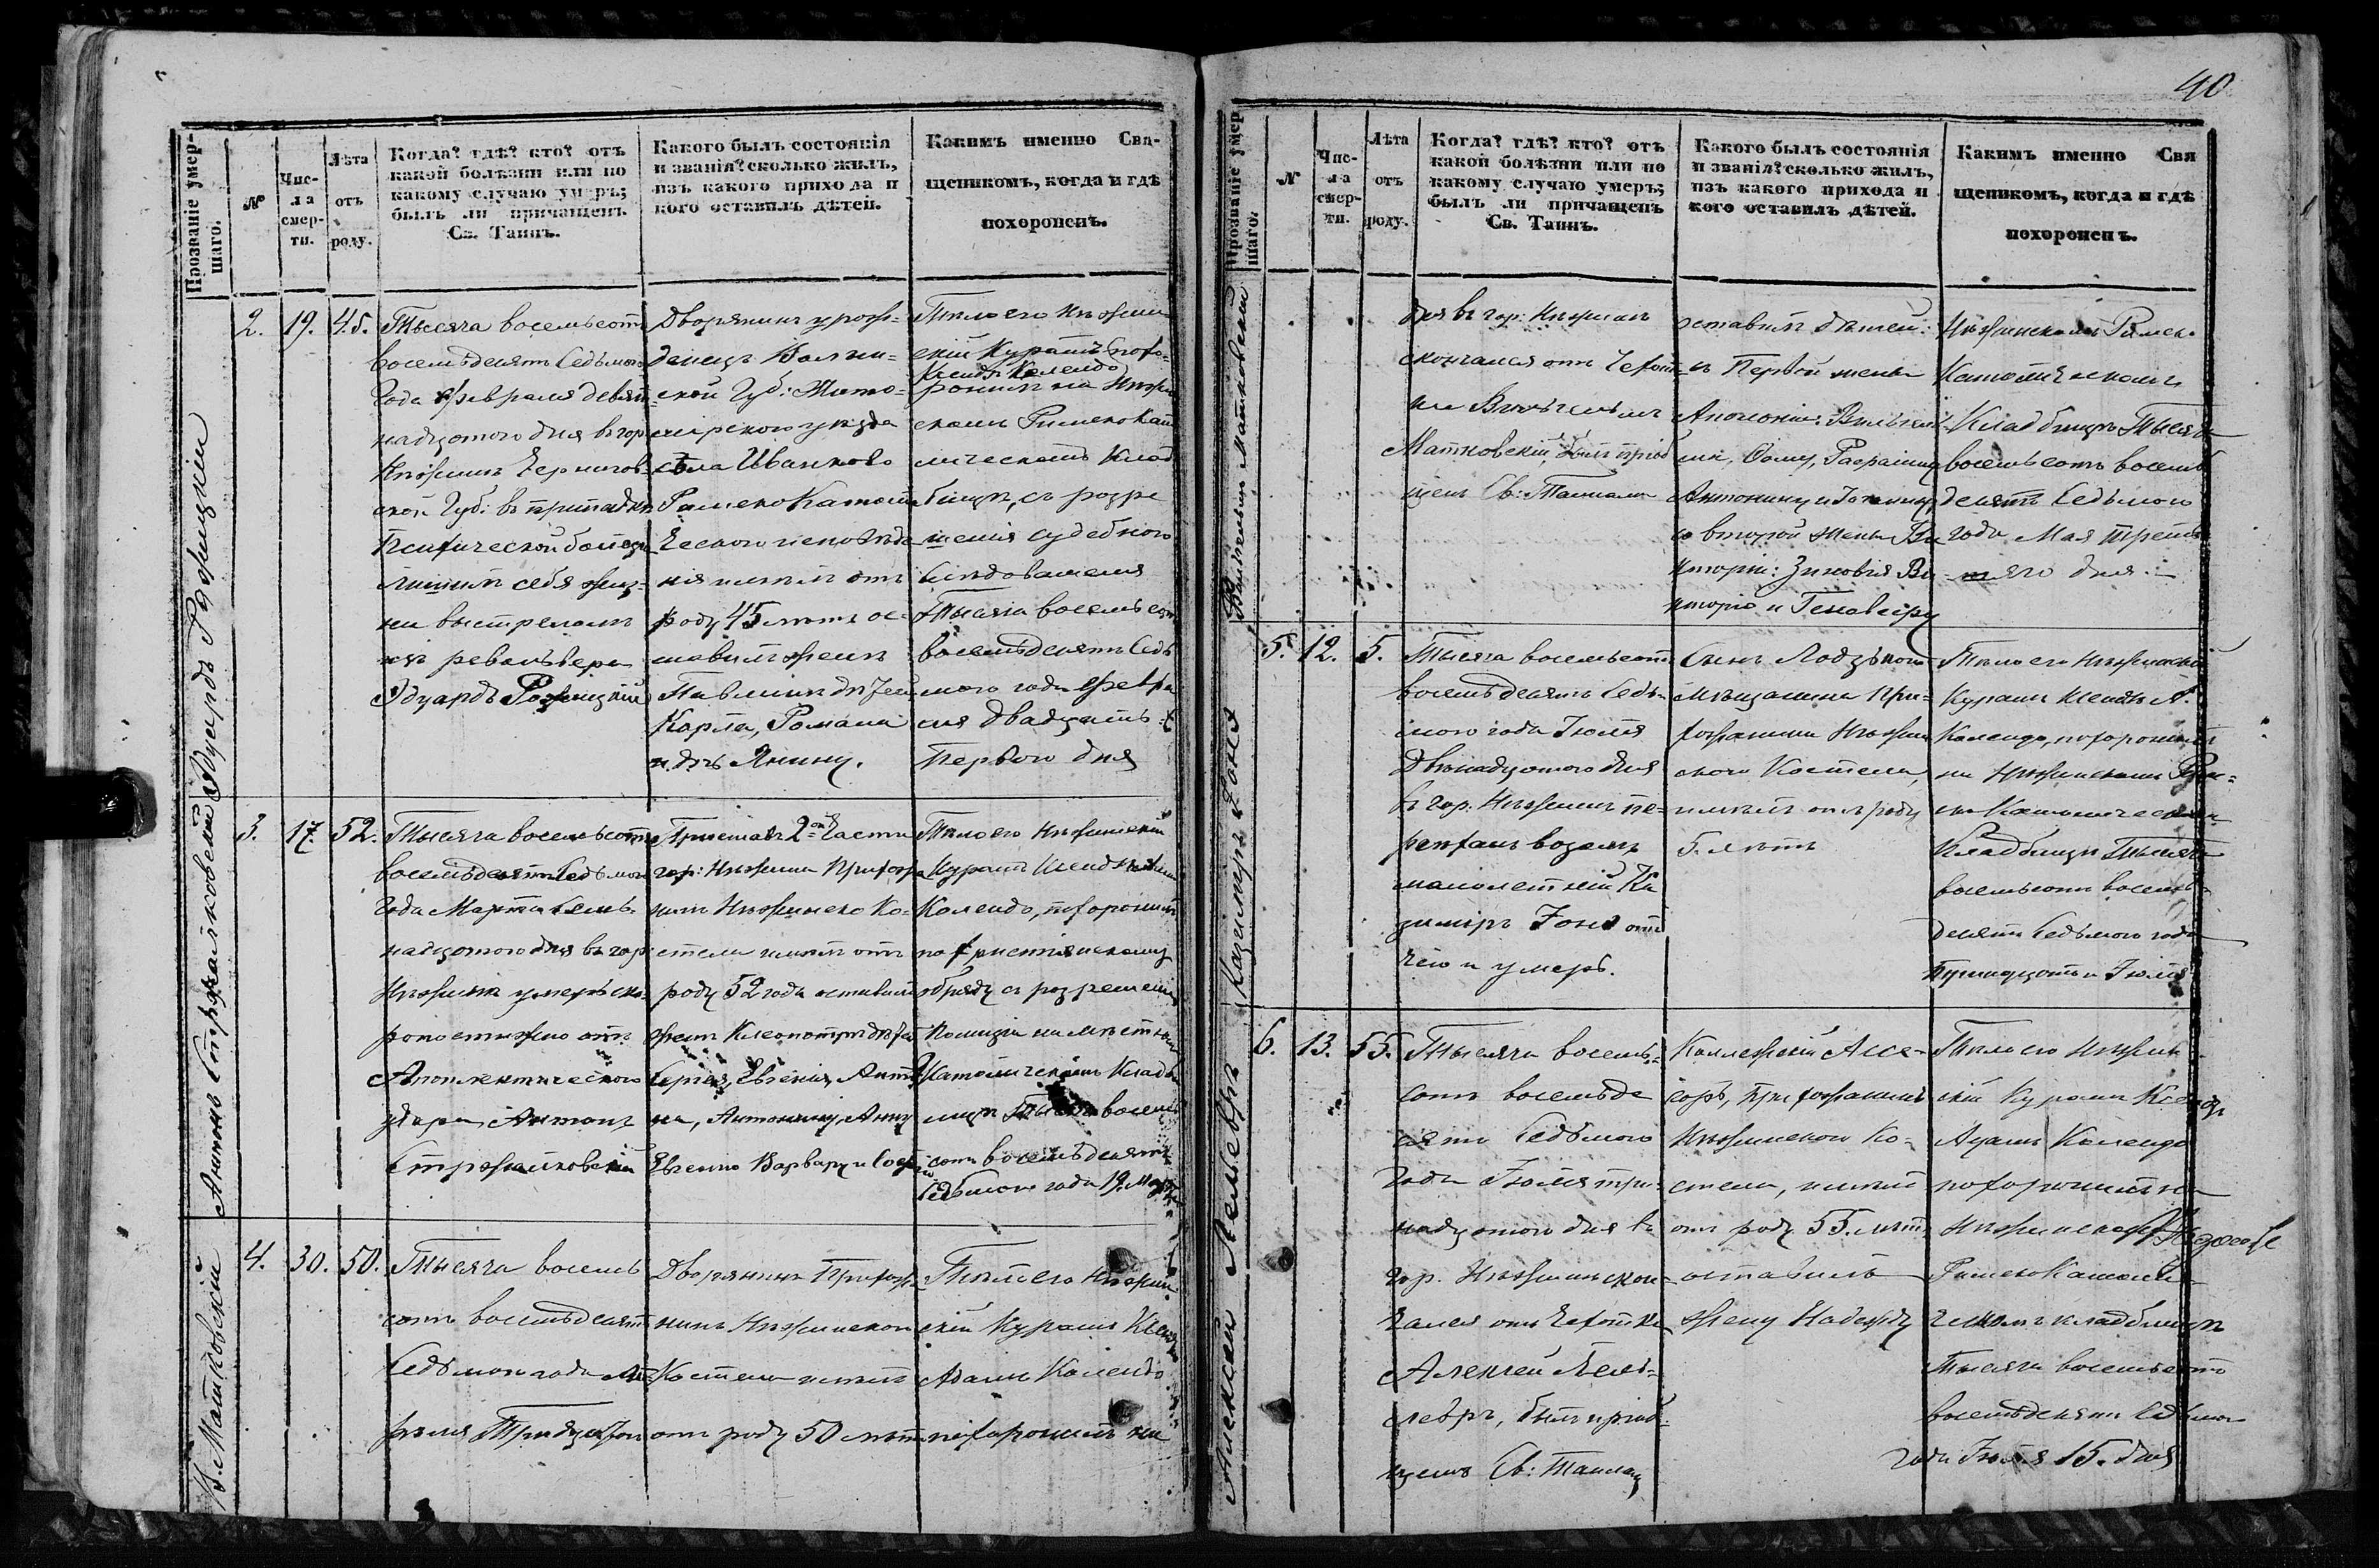 40
Прозваніе умер-
шаго.
№
Чис-
ла
смер-
ти.
Лѣта
отъ
роду.
Когда? гдѣ? кто? отъ
какой болѣзни или по
какому случаю умеръ;
былъ ли причащенъ
Св. Таинъ.
Какого былъ состоянія
и званія? сколько жилъ,
изъ какого прихода и
кого оставилъ дѣтей.
Какимъ именно Свя-
щеникомъ, когда и гдѣ
похороненъ.
Эдуардъ
2. 19. 45.
Тысяча восемьсотъ
восемьдесятъ седьмого
года февраля девят-
надцатого дня въ гор.
Нѣжинѣ Чернигов-
ской Губ. въ припадкѣ
Психической болезни
лишилъ себя жиз-
ни выстреломъ
изъ револьвера
Эдуардъ
Дворянинъ урож-
денецъ Волын-
ской Губ: Жито-
мирского уѣзда
села Иванково
Римско Католи-
ческого исповѣда-
нія имѣлъ отъ
роду 45 лѣтъ ос-
тавилъ жену
Павлину дѣтей
Карла, Романа
и дочь Янину.
Тѣло его Нѣжин-
скій Куратъ похо-
Ксендзъ Календо
ронилъ на Нѣжин
скомъ Римско Като
лическомъ Клад
бищѣ, съ разре
шенія судебного
слѣдователя
Тысяча восемьсотъ
восемьдесятъ седь
мого года февра
ля двадцать
Первого дня
Антонъ Стржалковскій
3. 17. 52.
Тысяча восемьсотъ
восемьдесятъ седьмого
года Марта семь-
надцатого дня въ гор.
Нѣжинѣ умеръ ско-
ропостижно отъ
Апоплектического
удара Антонъ
Стржалковскій
Приставъ 2ой части
гор: Нѣжина Прихожа
нинъ Нѣжинско Ко-
стела имѣлъ отъ
роду 52 года оставилъ
жену Клеопатру дѣтей
Сергея, Евгенія, Анто
на, Антонину, Анну
Евгению Варвару и Софію
Тѣло его Нѣжинскій
Куратъ Ксендзъ
Календо, похоронилъ
по христіянскому
обряду съ разрешенія
Полиціи на мѣстномъ
Католическомъ Кладби
щѣ Тысяча восемь
сотъ восемьдесятъ
седьмого года 19. Марта
В. Матковскій
4. 30. 50.
Тысяча восемь
сотъ восемьдесятъ
седьмого года Ап-
реля Тридцатого
Дворянинъ Прихожа
нинъ Нѣжинского
Костела имѣлъ
отъ роду 50 лѣтъ
Тѣло его Нѣжин
скій Куратъ Ксендзъ
Адамъ Календо
похоронилъ на
Вильгельмъ Матковскій
дня въ гор: Нѣжинѣ
скончался отъ Чехот-
ки Вильгельмъ
Матковскій, былъ приоб
щенъ Св: Таинами
оставилъ дѣтей:
съ Первой жены
Аполоніи: Вильгель-
ма, Фому,
Антонину и
со второй жены Ви
кторіи: Зиновія Ви
кторію и Геновефу
Нѣжинскомъ Римско
Католическомъ
Кладбищѣ Тысяча
восемьсотъ восемь
десятъ седьмого
года Мая Треть
яго дня
Казимиръ
5. 12. 5.
Тысяча восемьсотъ
восемьдесятъ седь-
мого года Іюля
Двѣнадцатого дня
въ гор. Нѣжинѣ пе-
реѣханъ возомъ
малолетній Ка
зимиръ отъ
чего и умеръ.
Сынъ Лодзьского
мѣщанина При-
хожанина Нѣжин
ского Костела,
имѣлъ отъ роду
5. лѣтъ
Тѣло его Нѣжинскій
Куратъ Ксендзъ А.
Календо, похоронилъ
на Нѣжинскомъ Рим-
ско Католическомъ
Кладбищѣ Тысяча
восемьсотъ восемь-
десятъ седьмого года
Іюля
Алексѣй
6. 13. 55.
Тысяча восемь-
сотъ восемьде
сятъ седьмого
года Іюля три-
надцатого дня въ
гор. Нѣжинѣ скон-
чался отъ Чехотки
Алексей
былъ приоб-
щенъ Св: Таинъ
Коллежскій Ассе-
соръ, прихожанинъ
Нѣжинского Ко-
стела, имѣлъ
отъ роду 55. лѣтъ
оставилъ
жену Надежду
Тѣло его Нѣжин
скій Куратъ Ксендзъ
Адамъ Календо
похоронилъ на
Римско Католи-
ческомъ кладбищѣ
Тысяча восемьсотъ
восемьдесятъ седьмого
года Іюля 15. дня